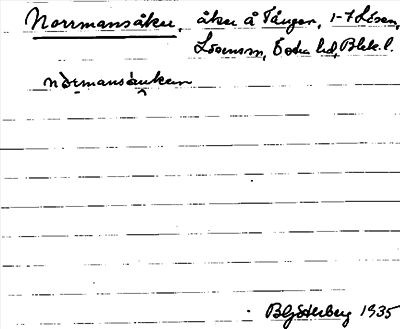 Norrmansåker, åker å Tånger, 1-7 Lösen,
Lösens sn, Östra hd, Blek. l.
nòrmansåukern
B Gösterberg 1935